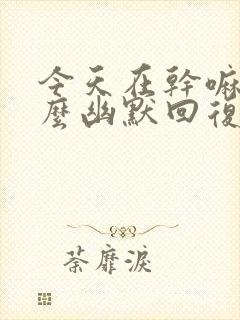 今天在幹嘛
麼幽默回復
荼靡淚